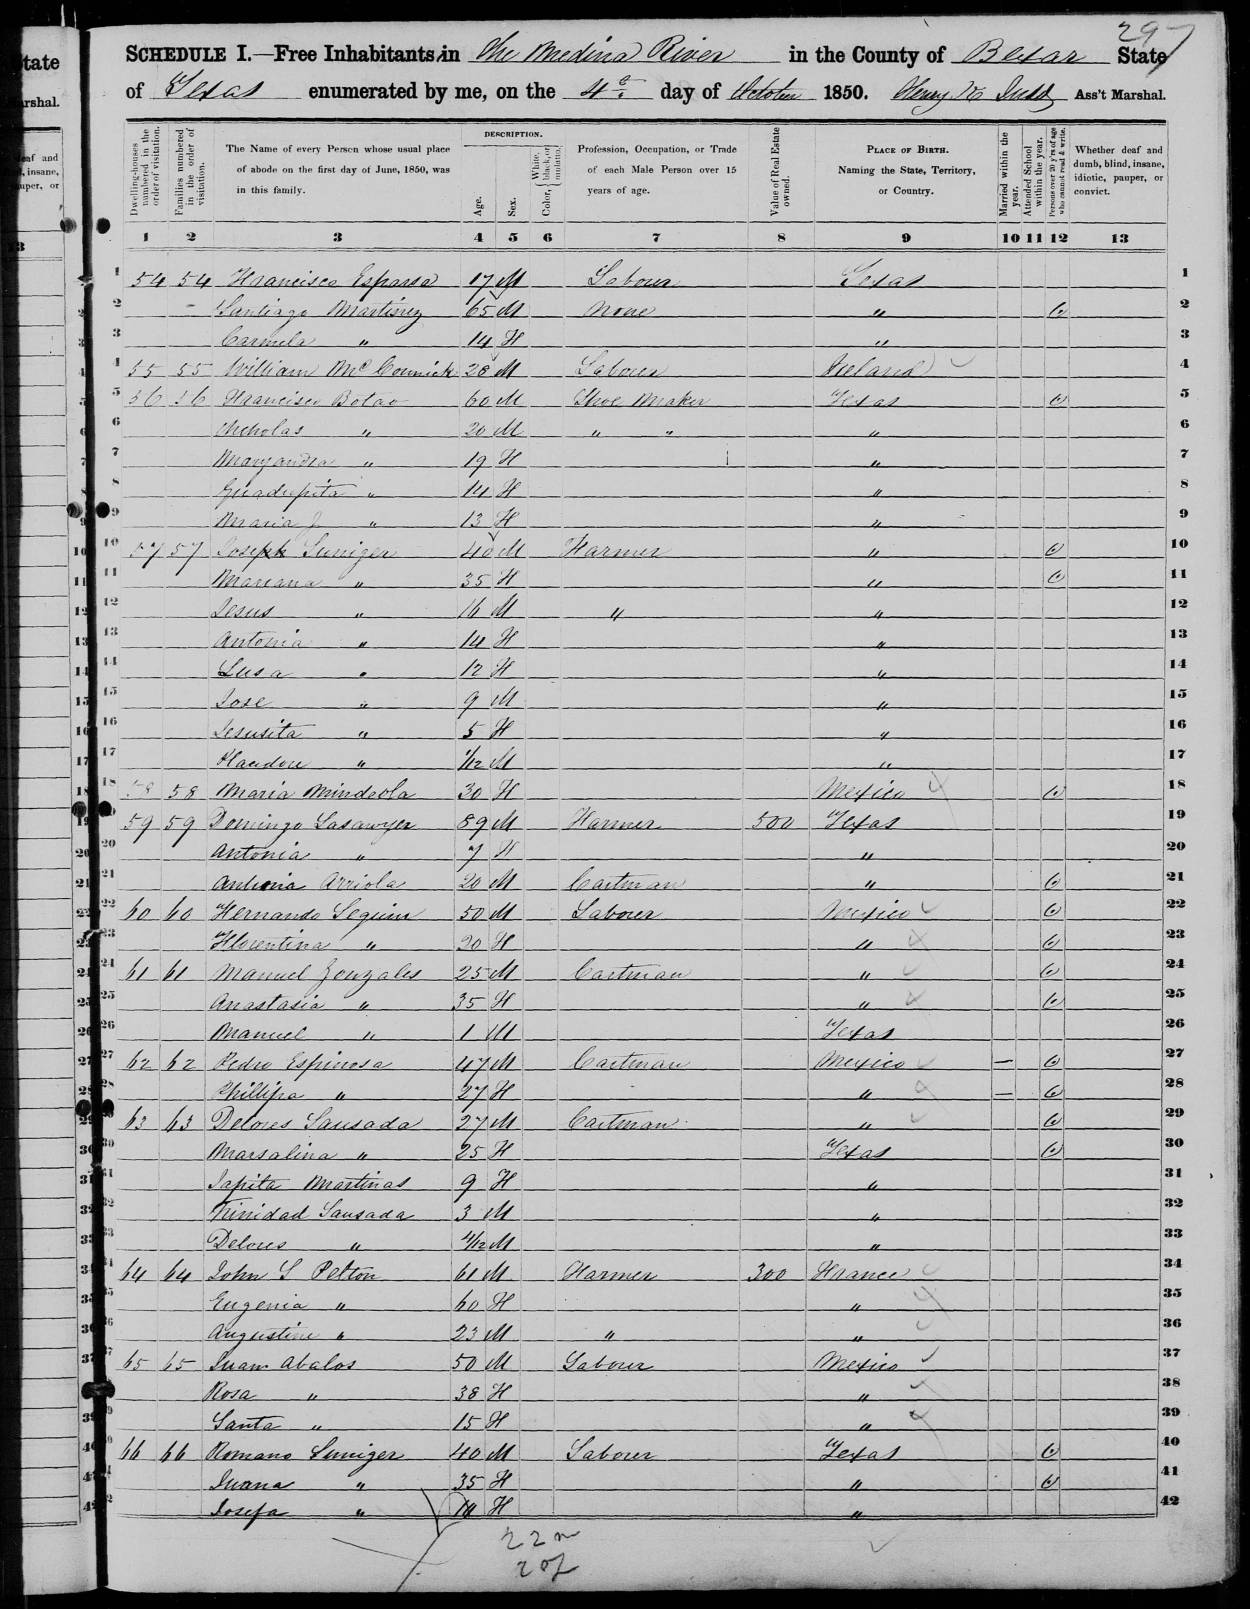 297
SCHEDULE I.—Free Inhabitants in The Medina River in the County of Bexar State
of Texas enumerated by me, on the 4th day of October 1850. Henry K Judd Ass't Marshal.
Dwelling-houses numbered in the order of visitation.
Families numbered in the order of visitation.
The Name of every Person whose usual place of abode on the first day of June, 1850, was in this family.
DESCRIPTION.
Age.
Sex.
Color, White, black, or mulatto.
Profession, Occupation, or Trade of each Male Person over 15 years of age.
Value of Real Estate owned.
PLACE OF BIRTH. Naming the State, Territory, or Country.
Married within the year.
Attended School within the year.
Persons over 20 y'rs of age who cannot read & write.
Whether deaf and dumb, blind, insane, idiotic, pauper, or convict.
1 2 3 4 5 6 7 8 9 10 11 12 13
1 54 54 Francisco Esparsa 17 M Labour Texas 1
2 Santiago Martinez 65 M None " 2
3 Carmela " 14 F " 3
4 55 55 William McCormick 28 M Labour Ireland 4
5 56 56 Francisco Botao 60 M Shoe Maker Texas 5
6 Nicholas " 20 M " " " 6
7 Maryandra " 19 F " 7
8 Guadupita " 14 F " 8
9 Maria J " 13 F " 9
10 57 57 Joseph Suniger 40 M Farmer " 10
11 Mariana " 35 F " 11
12 Jesus " 16 M " " 12
13 Antonia " 14 F " 13
14 Lusa " 12 F " 14
15 Jose " 9 M " 15
16 Jesusita " 5 F " 16
17 " 1/12 M " 17
18 58 58 Maria Mindeola 30 F Mexico 18
19 59 59 Domingo Lasawyer 89 M Farmer 500 Texas 19
20 Antonia " 7 F " 20
21 Antonia Arriola 20 M Cartman " 21
22 60 60 Fernando Seguin 50 M Labour Mexico 22
23 Florentina " 20 F " 23
24 61 61 Manuel Gonzales 25 M Cartman " 24
25 Anastasia " 35 F " 25
26 Manuel " 1 M Texas 26
27 62 62 Pedro Espinosa 47 M Cartman Mexico — 27
28 Phillipa " 27 F " — 28
29 63 63 Delores Sausada 27 M Cartman " 29
30 Marsalina " 25 F Texas 30
31 Japita Martinas 9 F " 31
32 Trinidad Sausada 3 M " 32
33 Delores " 4/12 M " 33
34 64 64 John S Pelton 61 M Farmer 300 France 34
35 Eugenia " 60 F " 35
36 Augustine " 23 M " " 36
37 65 65 Juan Abalos 50 M Labour Mexico 37
38 Rosa " 38 F " 38
39 Santa " 15 F " 39
40 66 66 Romano Suniger 40 M Labour Texas 40
41 Juana " 35 F " 41
42 Josefa " 14 F " 42
22 m
20 f